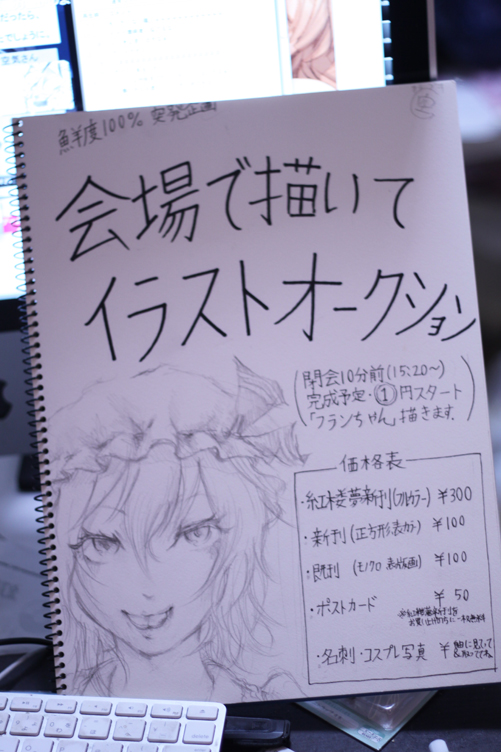 鮮度100% 突発企画
会場で描いて
イラストオークション
(閉会10分前(15:20~)
完成予定・①円スタート
「フランちゃん」描きます。)
価格表
・紅楼夢新刊(フルカラー) ¥300
・新刊(正方形、表カラー) ¥100
・既刊(モノクロ 表版画) ¥100
・ポストカード ¥50
・名刺・コスプレ写真 ¥